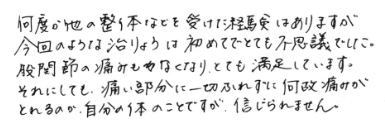 何度か他の整体などを受けた経験はありますが
今回のような治りょうは初めてでとても不思議でした。
股関節の痛みも少なくなり、とても満足しています。
それにしても、痛い部分に一切ふれずに何故痛みが
とれるのか、自分の体のことですが、信じられません。